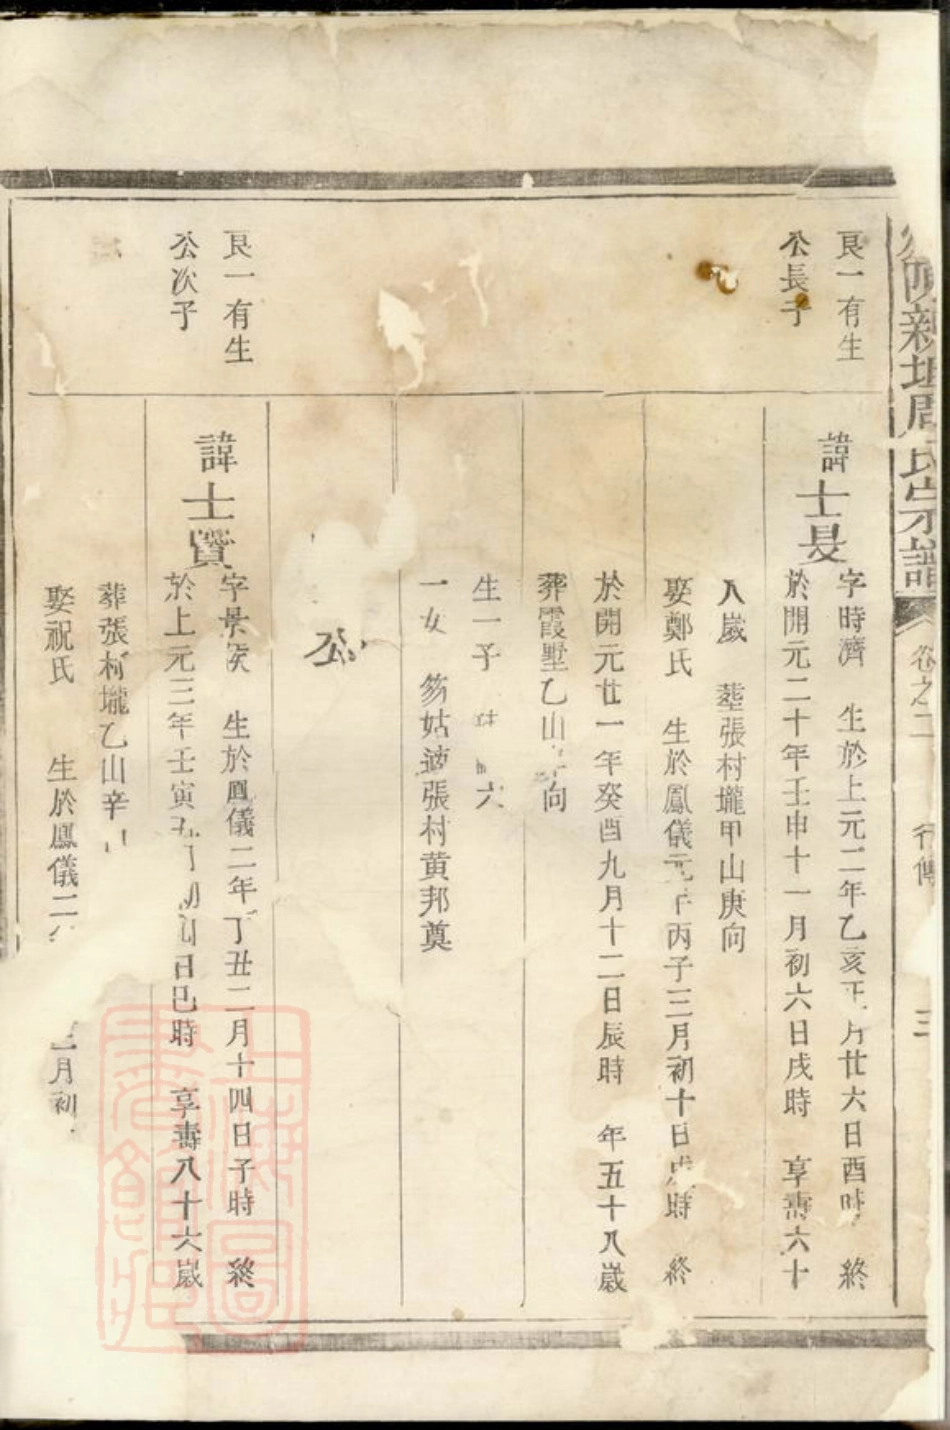 新
周氏宗譜
卷之二
行傳
三
良一有生
公長子
諱士旻
字時濟　生於上元二年乙亥正月廿六日酉時　終
於開元二十年壬申十一月初六日戌時　享壽六十
八歲　塟張村壠甲山庚向
娶鄭氏　生於鳳儀元年丙子三月初十日戌時　終
於開元廿一年癸酉九月十二日辰時　年五十八歲
葬霞墅乙山向
生一子　六
一女　笏姑適張村黃邦奠
公
良一有生
公次子
諱士贇
字景　生於鳳儀二年丁丑二月十四日子時　終
於上元三年壬寅日巳時　享壽八十六歲
葬張村壠乙山辛
娶祝氏　生於鳳儀二　月初